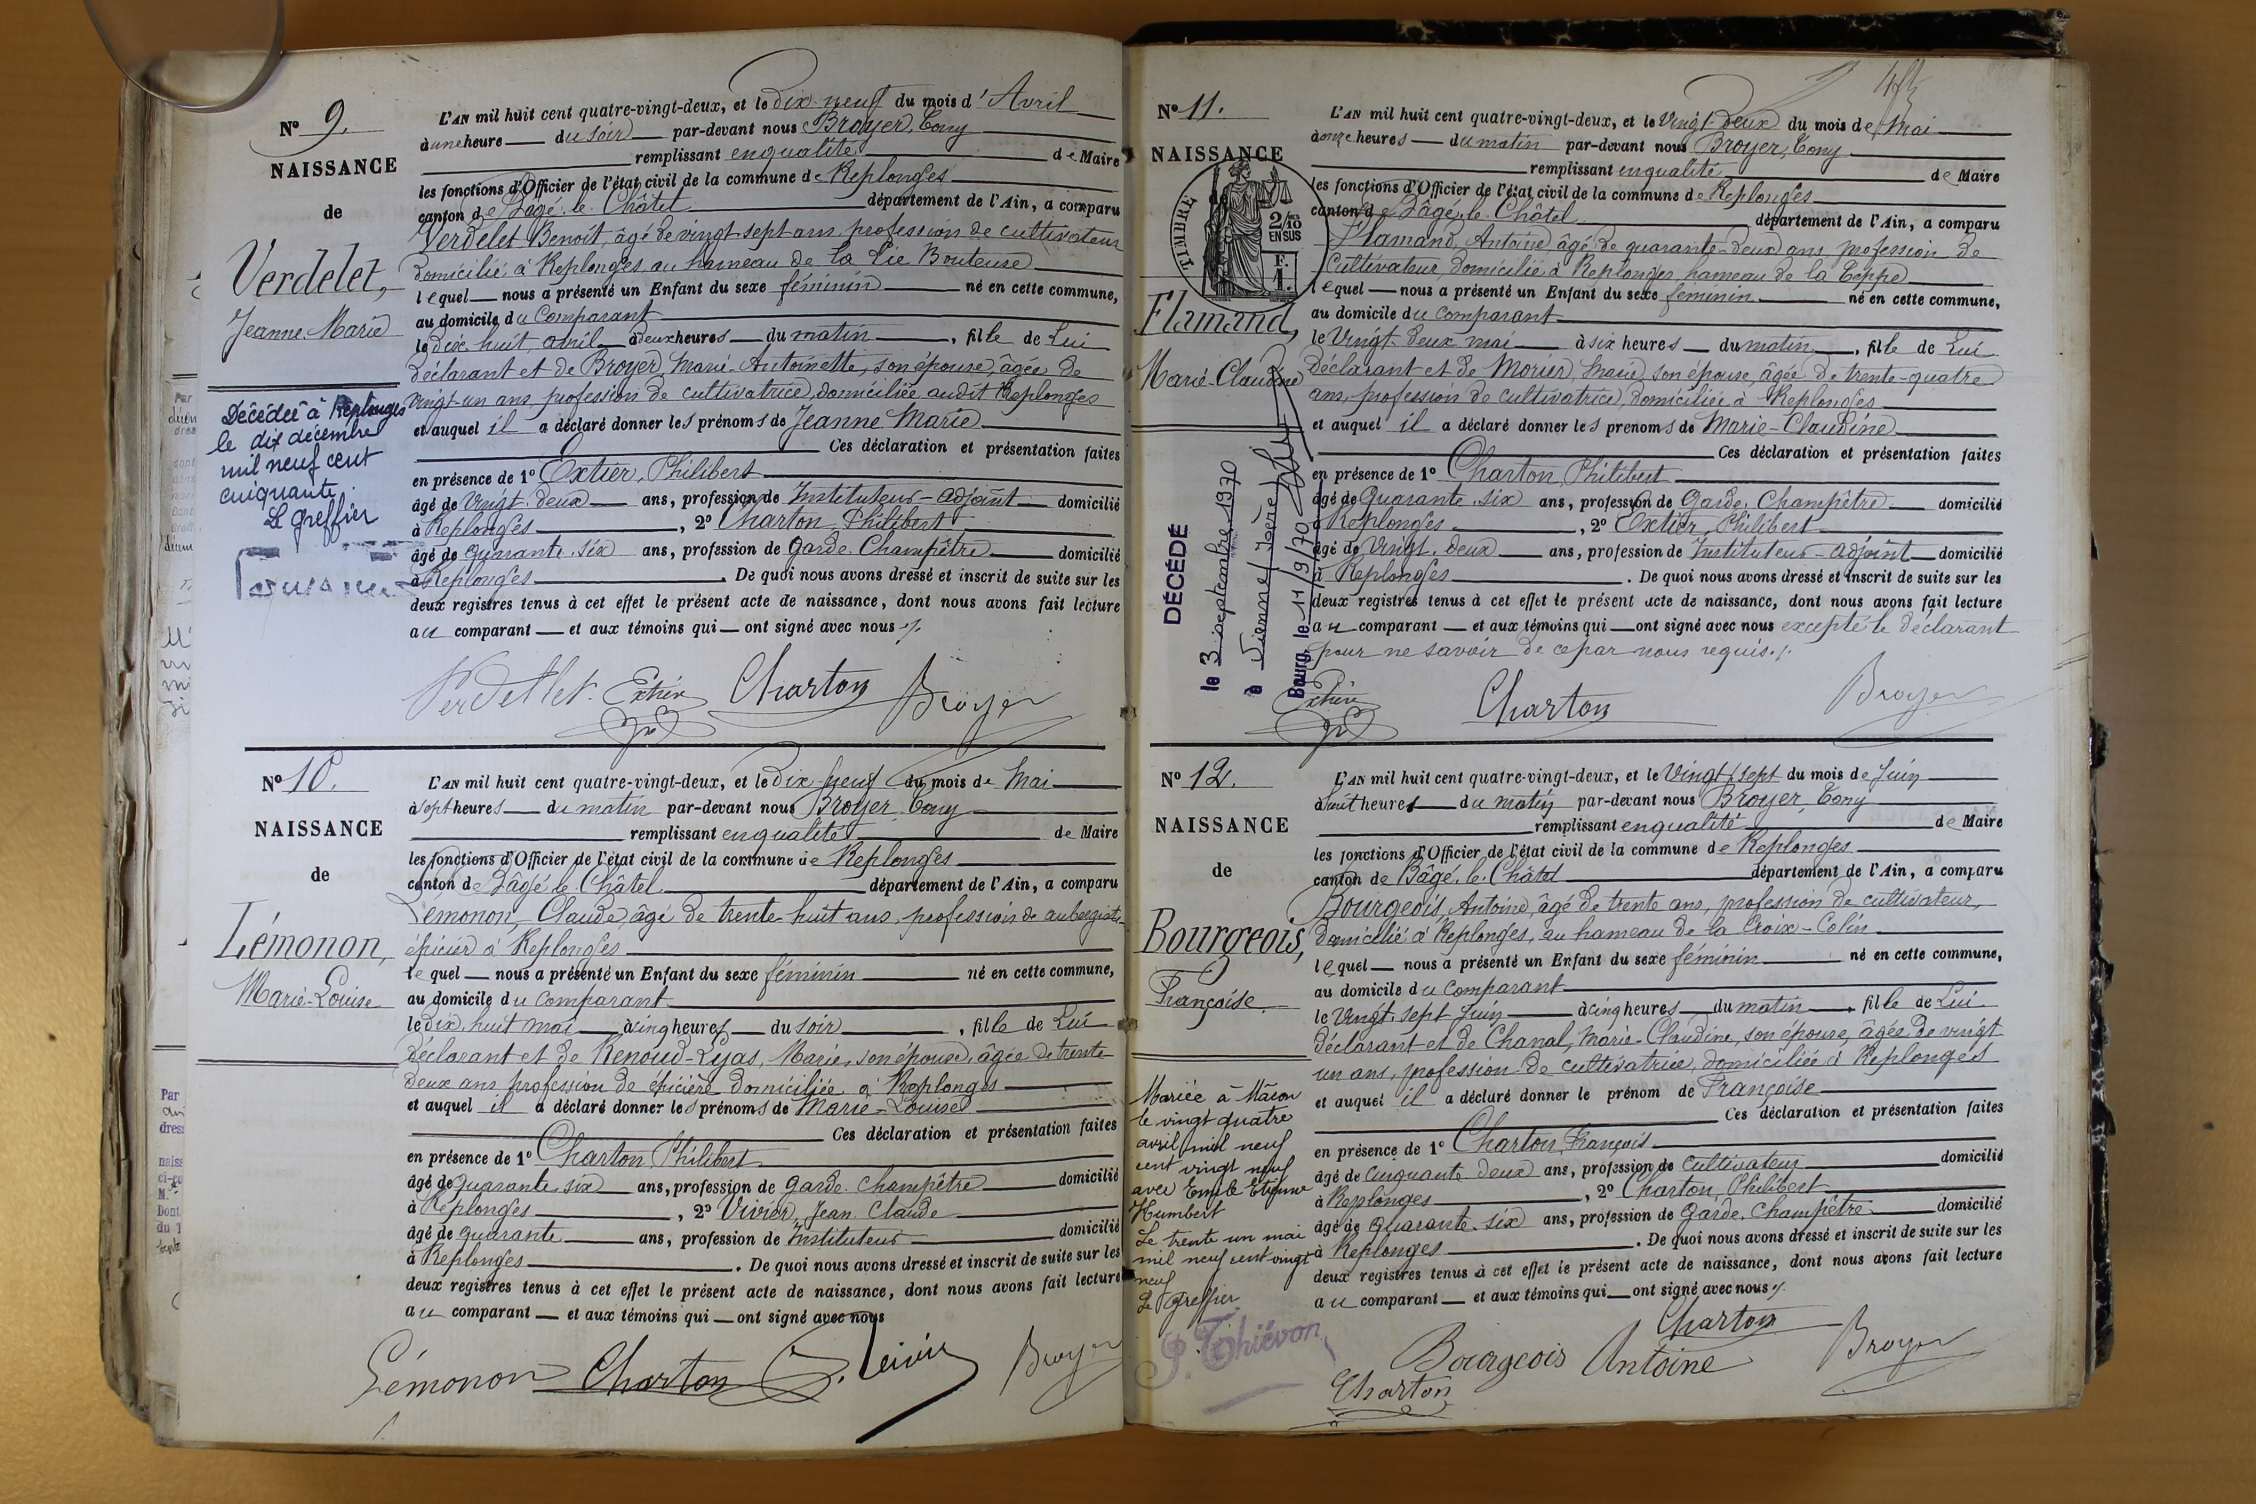 N° 9.
NAISSANCE
de
Verdelet,
Jeanne-Marie
Décédée à Replonges
le dix décembre
mil neuf cent
cinquante.
Le greffier
L'AN mil huit cent quatre-vingt-deux, et le Dix-neuf du mois d'Avril
à une heure du soir par-devant nous Broyer, Tony
remplissant en qualité de Maire
les fonctions d'Officier de l'état civil de la commune de Replonges
canton de Bâgé-le-Châtel département de l'Ain, a comparu
Verdelet Benoit, âgé de vingt-sept ans, profession de cultivateur
domicilié à Replonges au hameau de la Pie Bouteuse
lequel nous a présenté un Enfant du sexe féminin né en cette commune,
au domicile du comparant
le dix-huit avril à deux heures du matin, fille de Lui
Déclarant et de Broyer, Marie-Antoinette, son épouse, âgée de
vingt-un ans, profession de cultivatrice, domiciliée audit Replonges
et auquel il a déclaré donner les prénoms de Jeanne Marie
Ces déclaration et présentation faites
en présence de 1° Extier, Philibert
âgé de Vingt-deux ans, profession de Instituteur-adjoint domicilié
à Replonges, 2° Charton, Philibert
âgé de quarante-six ans, profession de Garde-Champêtre domicilié
à Replonges. De quoi nous avons dressé et inscrit de suite sur les
deux registres tenus à cet effet le présent acte de naissance, dont nous avons fait lecture
au comparant et aux témoins qui ont signé avec nous ./.
Verdellet Extier Charton Broyer
N° 10.
NAISSANCE
de
Lémonon,
Marie-Louise
L'AN mil huit cent quatre-vingt-deux, et le Dix-neuf du mois de Mai
à sept heures du matin par-devant nous Broyer, Tony
remplissant en qualité de Maire
les fonctions d'Officier de l'état civil de la commune de Replonges
canton de Bâgé-le-Châtel département de l'Ain, a comparu
Lémonon, Claude, âgé de trente-huit ans, profession de aubergiste-
épicier à Replonges
lequel nous a présenté un Enfant du sexe féminin né en cette commune,
au domicile du comparant
le dix-huit mai à cinq heures du soir, fille de Lui
Déclarant et de Renoud-Lyas, Marie, son épouse, âgée de trente-
deux ans, profession de épicière domiciliée à Replonges
et auquel il a déclaré donner les prénoms de Marie-Louise
Ces déclaration et présentation faites
en présence de 1° Charton, Philibert
âgé de quarante-six ans, profession de garde-champêtre domicilié
à Replonges, 2° Vivier, Jean Claude
âgé de quarante ans, profession de Instituteur domicilié
à Replonges. De quoi nous avons dressé et inscrit de suite sur les
deux registres tenus à cet effet le présent acte de naissance, dont nous avons fait lecture
au comparant et aux témoins qui ont signé avec nous
Lémonon Charton J. Vivier Broyer
N° 11.
NAISSANCE
TIMBRE
2/10 EN SUS
F. 1.
Flamand,
Marie-Claudine
DÉCÉDÉ
le 3 septembre 1970
à Vienne/Isère/
Bourg, le 11/9/70
L'AN mil huit cent quatre-vingt-deux, et le Vingt-Deux du mois de Mai
à onze heures du matin par-devant nous Broyer, Tony
remplissant en qualité de Maire
les fonctions d'Officier de l'état civil de la commune de Replonges
canton de Bâgé-le-Châtel département de l'Ain, a comparu
Flamand, Antoine âgé de quarante-deux ans profession de
Cultivateur domicilié à Replonges hameau de la Teppe
lequel nous a présenté un Enfant du sexe féminin né en cette commune,
au domicile du comparant
le Vingt-deux mai à six heures du matin, fille de Lui
Déclarant et de Morier, Marie, son épouse, âgée de trente-quatre
ans, profession de cultivatrice, domiciliée à Replonges
et auquel il a déclaré donner les prenoms de Marie-Claudine
Ces déclaration et présentation faites
en présence de 1° Charton, Philibert
âgé de Quarante-six ans, profession de Garde-Champêtre domicilié
à Replonges, 2° Extier, Philibert
âgé de Vingt-deux ans, profession de Instituteur-adjoint domicilié
à Replonges. De quoi nous avons dressé et inscrit de suite sur les
deux registres tenus à cet effet le présent acte de naissance, dont nous avons fait lecture
au comparant et aux témoins qui ont signé avec nous excepté le déclarant
pour ne savoir de ce par nous requis ./.
Extier Charton Broyer
N° 12.
NAISSANCE
de
Bourgeois,
Françoise
Mariée à Mâcon
le vingt quatre
avril mil neuf
cent vingt neuf
avec Emile Etienne
Humbert
Le trente un mai
mil neuf cent vingt
neuf
Le Greffier
P. Thiévon
L'AN mil huit cent quatre-vingt-deux, et le Vingt-sept du mois de Juin
à huit heures du matin par-devant nous Broyer, Tony
remplissant en qualité de Maire
les fonctions d'Officier de l'état civil de la commune de Replonges
canton de Bâgé-le-Châtel département de l'Ain, a comparu
Bourgeois, Antoine, âgé de trente ans, profession de cultivateur,
domicilié à Replonges, au hameau de la Croix-Colin
lequel nous a présenté un Enfant du sexe féminin né en cette commune,
au domicile du comparant
le Vingt-sept Juin à cinq heures du matin, fille de Lui
Déclarant et de Chanal, Marie-Claudine, son épouse, âgée de vingt
un ans, profession de cultivatrice, domiciliée à Replonges
et auquel il a déclaré donner le prénom de Françoise
Ces déclaration et présentation faites
en présence de 1° Charton, François
âgé de cinquante-deux ans, profession de Cultivateur domicilié
à Replonges, 2° Charton, Philibert
âgé de quarante-six ans, profession de Garde-Champêtre domicilié
à Replonges. De quoi nous avons dressé et inscrit de suite sur les
deux registres tenus à cet effet le présent acte de naissance, dont nous avons fait lecture
au comparant et aux témoins qui ont signé avec nous ./.
Charton
Bourgeois Antoine Broyer
Charton